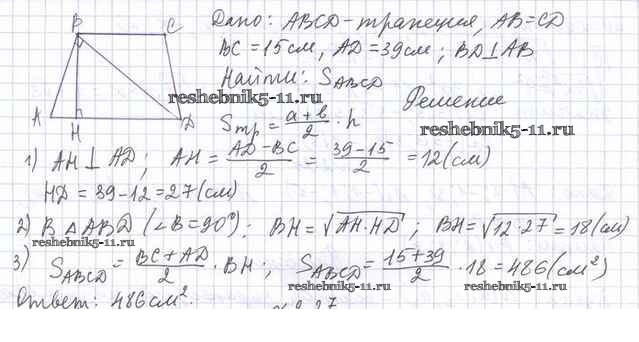 B C
Дано: ABCD - трапеция, AB = CD
BC = 15 см, AD = 39 см; BD ⊥ AB
Найти: S_ABCD
A H D
reshebnik5-11.ru
Решение
S_тр = (a + b)/2 · h
reshebnik5-11.ru
1) AH ⊥ AD; AH = (AD - BC)/2 = (39 - 15)/2 = 12 (см)
HD = 39 - 12 = 27 (см)
2) В △ABD (∠B = 90°): BH = √(AH · HD); BH = √(12 · 27) = 18 (см)
reshebnik5-11.ru
3) S_ABCD = (BC + AD)/2 · BH; S_ABCD = (15 + 39)/2 · 18 = 486 (см²)
reshebnik5-11.ru
Ответ: 486 см².